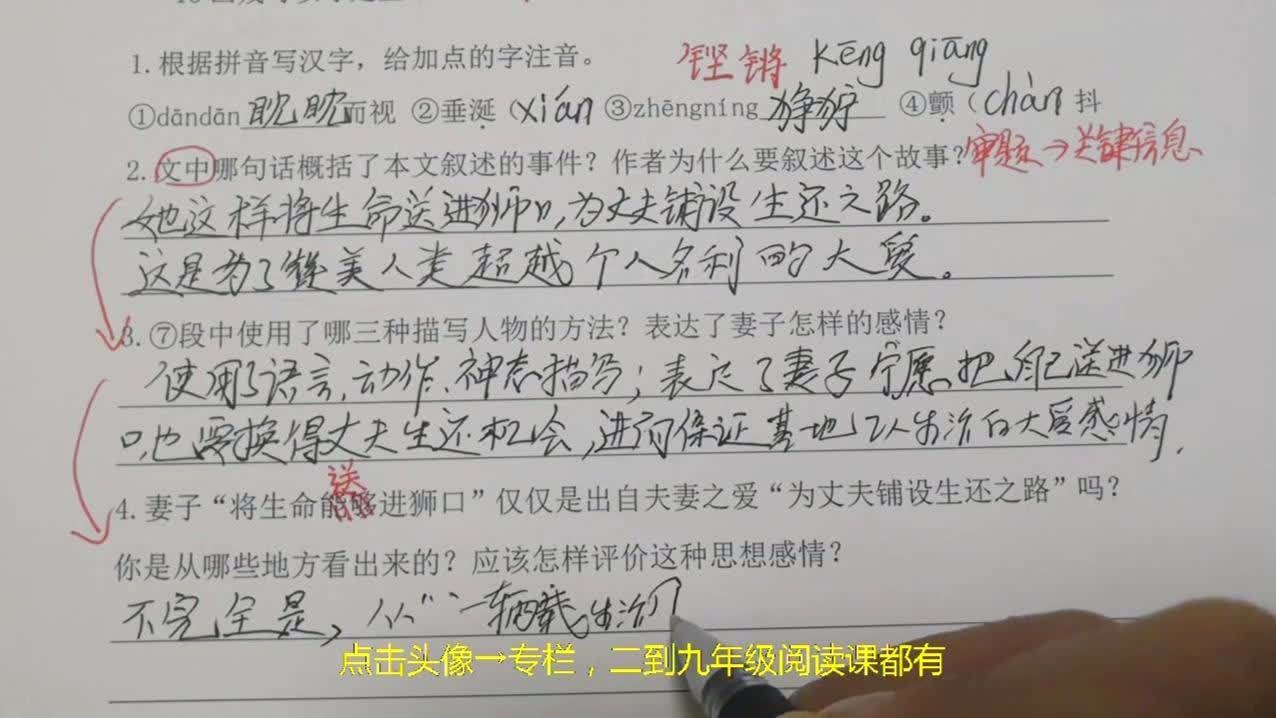 铿锵 kēng qiāng
1. 根据拼音写汉字，给加点的字注音。
①dāndān 眈眈而视 ②垂涎（xián ③zhēngníng 狰狞 ④颤（chàn 抖
2. 文中哪句话概括了本文叙述的事件？作者为什么要叙述这个故事？审题→关键信息
她这样将生命送进狮口，为丈夫铺设生还之路。
这是为了赞美人类超越个人名利的大爱。
3. ⑦段中使用了哪三种描写人物的方法？表达了妻子怎样的感情？
使用了语言、动作、神态描写；表达了妻子宁愿把自己送进狮
口，也要换得丈夫生还机会，进而保证基地人生活的大爱感情.
送
4. 妻子“将生命能够进狮口”仅仅是出自夫妻之爱“为丈夫铺设生还之路”吗？
你是从哪些地方看出来的？应该怎样评价这种思想感情？
不完全是，从“一辆载生活
点击头像→专栏，二到九年级阅读课都有